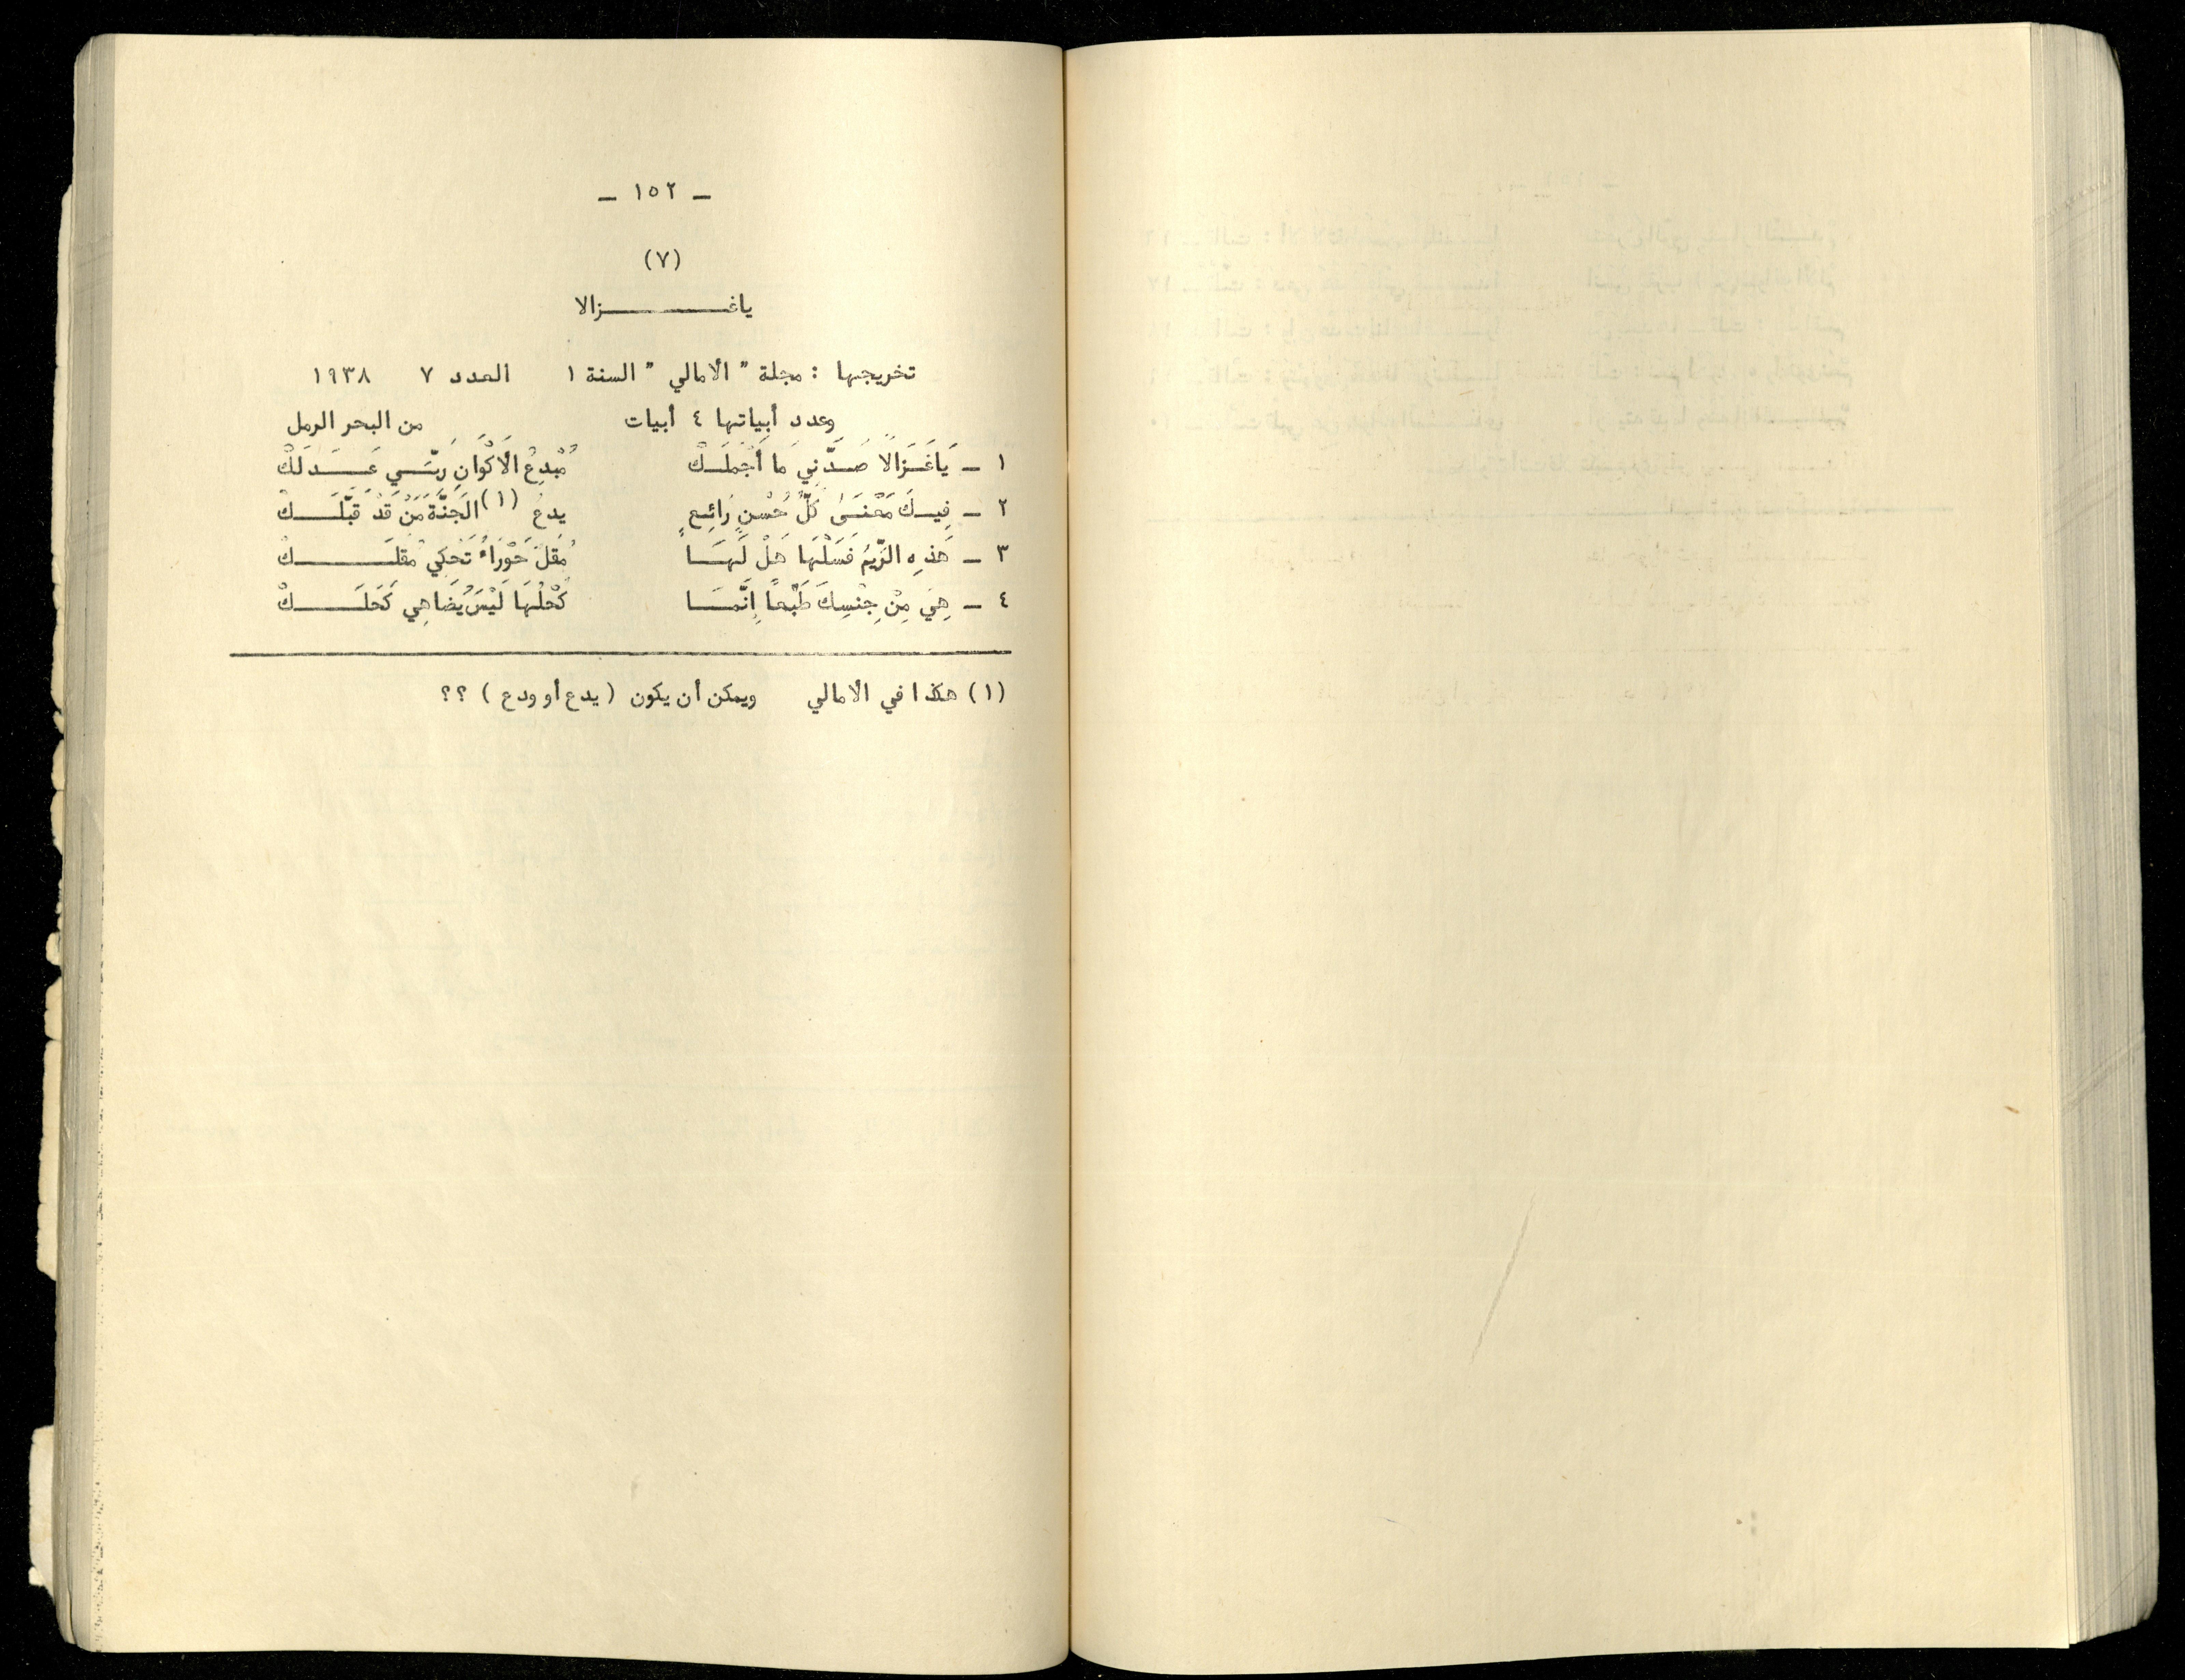 ـ ١٥٢ ـ
(٧)
ياغـــــــزالا
تخريجها : مجلة " الأمالي " السنة ١ العدد ٧ ١٩٣٨
وعدد أبياتها ٤ أبيات من البحر الرمل
١ ـ يَاغَـزَالًا صَـدَّنِي مَا أَجْمَلَـكْ مُبْدِعُ الَاكْوَانِ رَبّـي عَـدَلَكْ
٢ ـ فِيـكَ مَعْنَـىٰ كُلِّ حُسْنٍ رَائِـعٍ يدعُ (١) الجَنَّةَ مَنْ قَدْ قَبَّلَـكْ
٣ ـ هَذِهِ الرِّيْمُ فَسَلْهَا هَلْ لَهَـا مُقَلٌ حَوْرَاءُ تَحْكِي مُقَلَـكْ
٤ ـ هِيَ مِنْ جِنْسِكَ طَبْعاً إِنَّمَـا كُحْلُهَا لَيْسَ يُضَاهِي كَحَلَـكْ
(١) هكذا في الأمالي ويمكن أن يكون (يدع أو ودع ) ؟؟